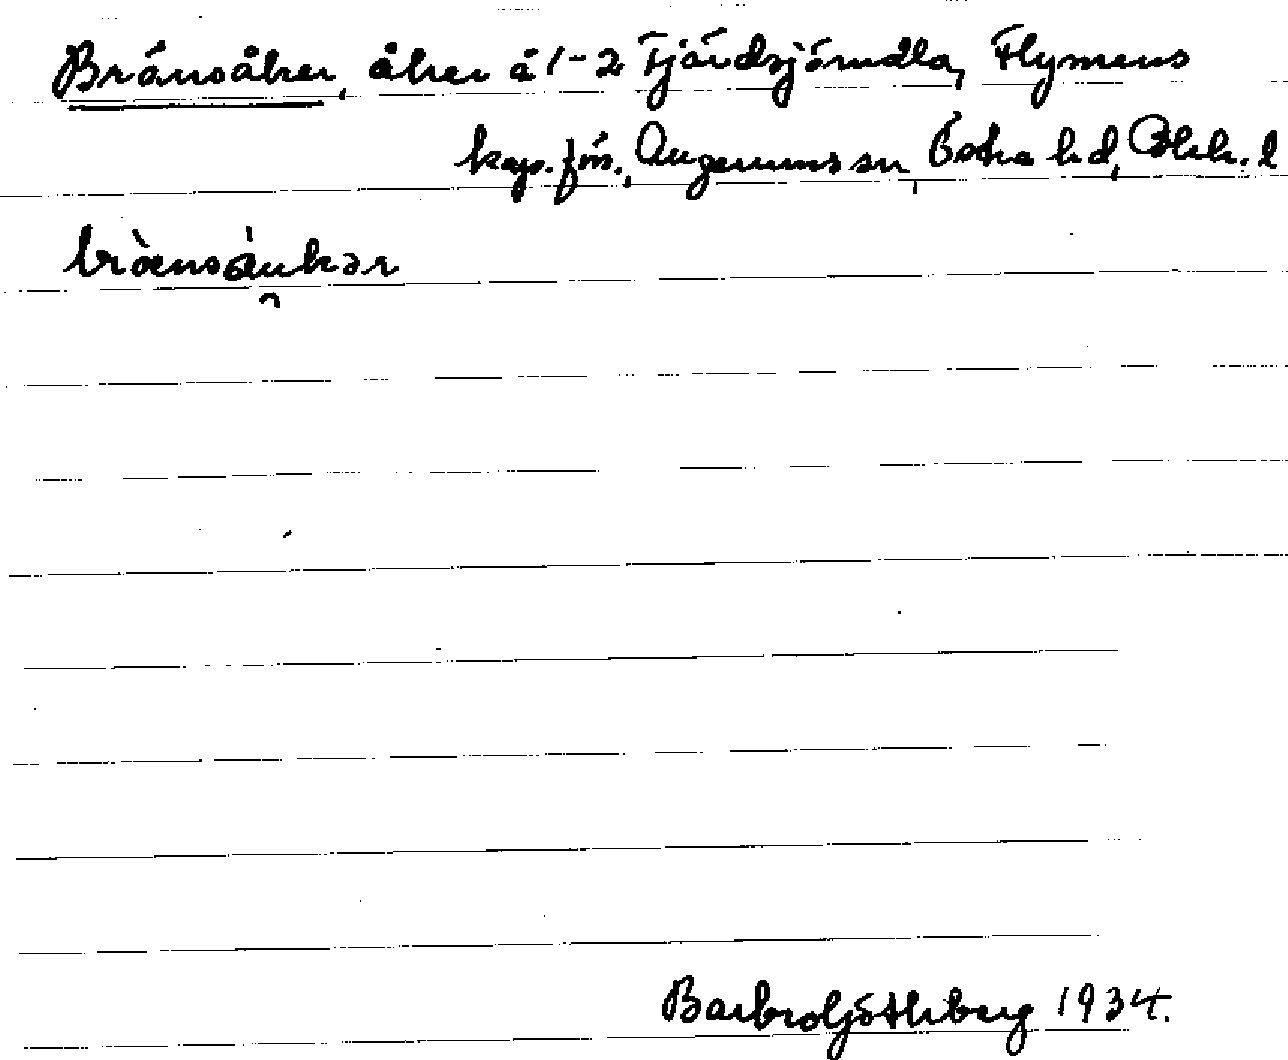 Bränsåker, åker å 1-2 Fjärdsjömåla, Flymens
kap. fös., Augerums sn, Östra hd, Blek. l
brænsåukər
Barbro Göthberg 1934.